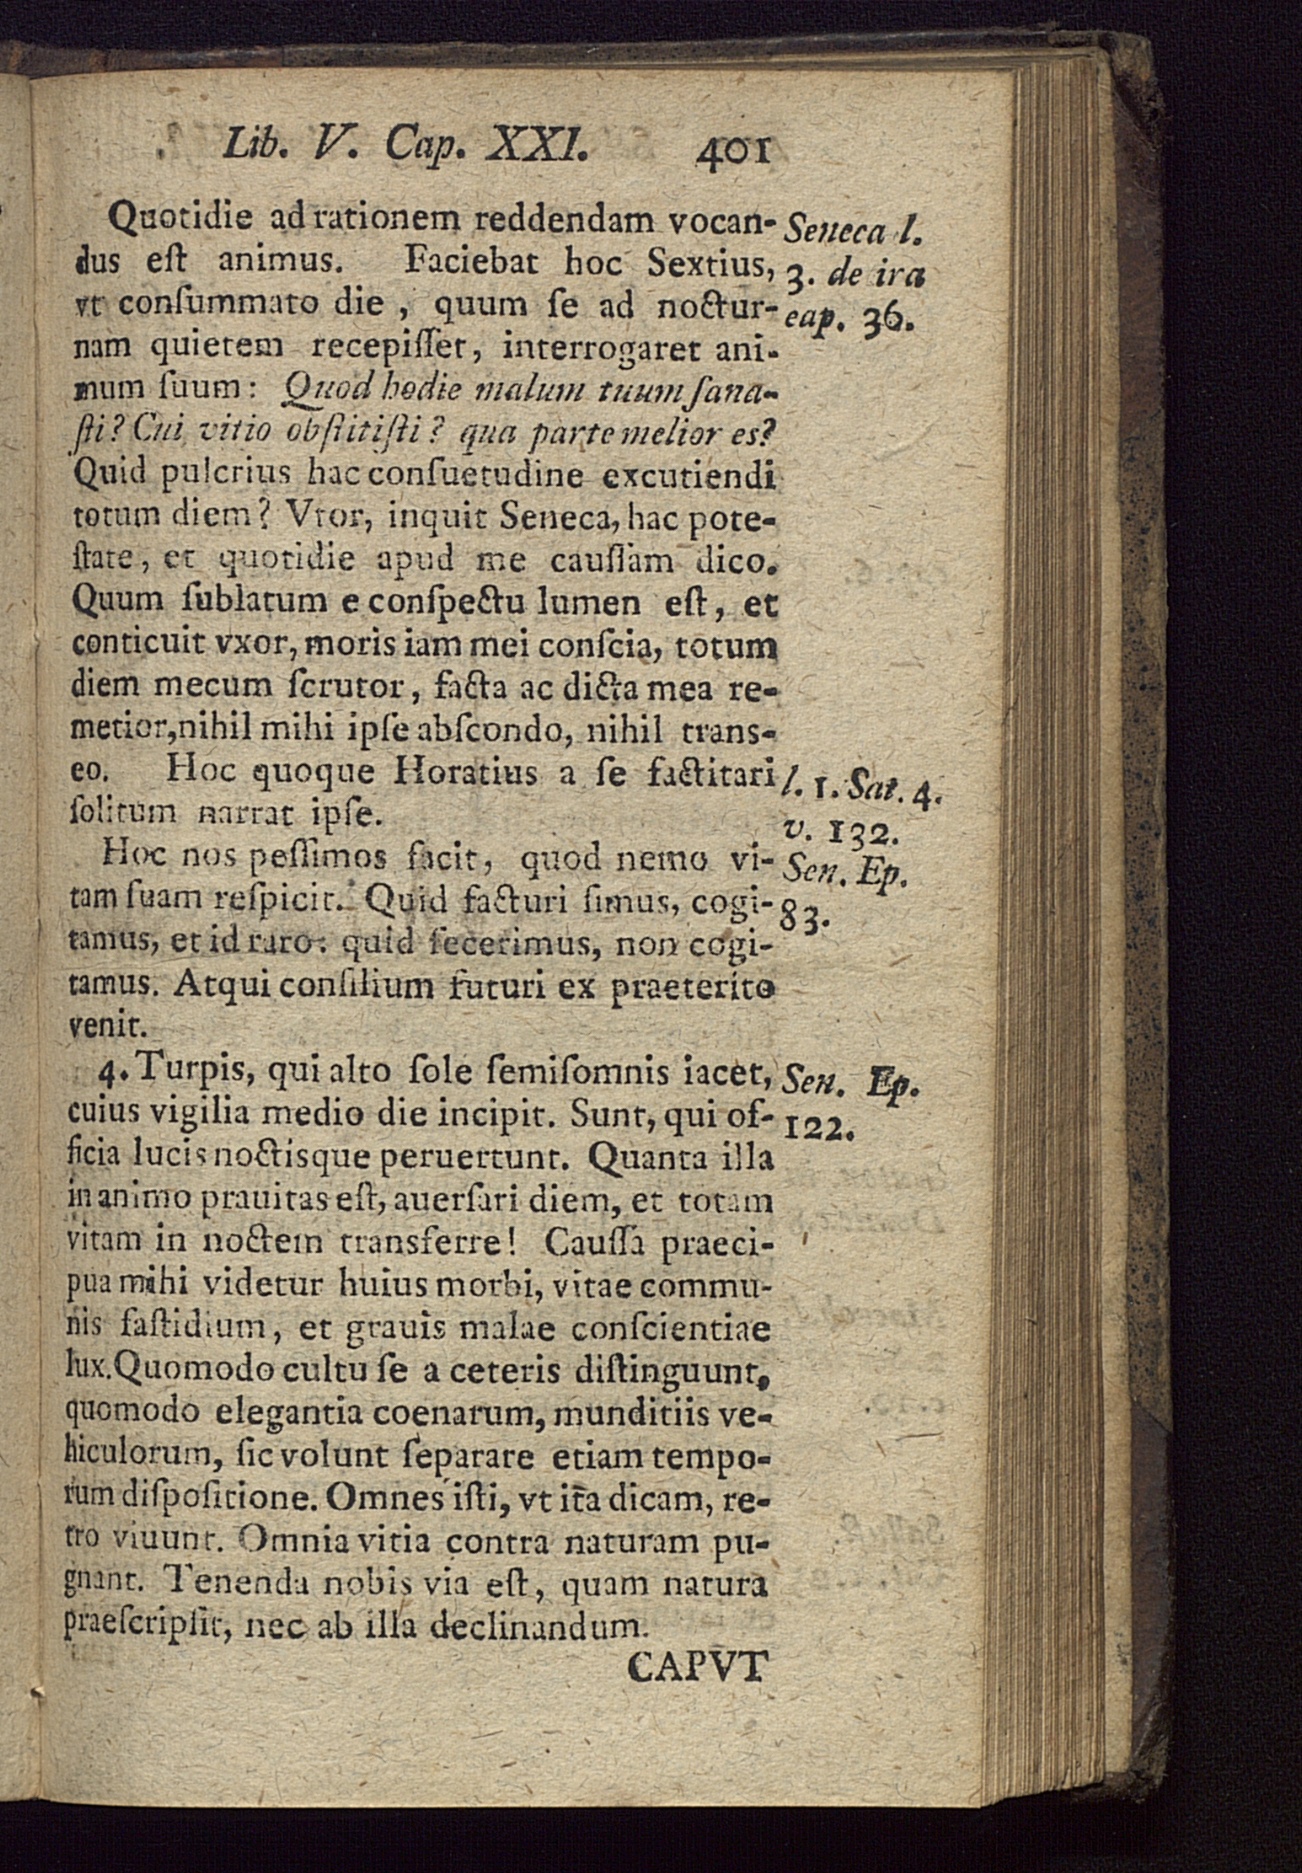 Lib. V. Cap. XXI. 401
Quotidie ad rationem reddendam vocan-
dus eſt animus. Faciebat hoc Sextius,
vt conſummato die, quum ſe ad noctur-
nam quietem recepiſſet, interrogaret ani-
mum ſuum: Quod hodie malum tuum ſana-
ſti? Cui vitio obſtitiſti? qua parte melior es?
Quid pulcrius hac conſuetudine excutiendi
totum diem? Vtor, inquit Seneca, hac pote-
ſtate, et quotidie apud me cauſſam dico.
Quum ſublatum e conſpectu lumen eſt, et
conticuit vxor, moris iam mei conſcia, totum
diem mecum ſcrutor, facta ac dicta mea re-
metior, nihil mihi ipſe abſcondo, nihil trans-
eo. Hoc quoque Horatius a ſe factitari
ſolitum narrat ipſe.
Hoc nos peſſimos facit, quod nemo vi-
tam ſuam reſpicit. Quid facturi ſimus, cogi-
tamus, et id raro: quid fecerimus, non cogi-
tamus. Atqui conſilium futuri ex praeterito
venit.
4. Turpis, qui alto ſole ſemiſomnis iacet,
cuius vigilia medio die incipit. Sunt, qui of-
ficia lucis noctisque peruertunt. Quanta illa
in animo prauitas eſt, auerſari diem, et totam
vitam in noctem transferre! Cauſſa praeci-
pua mihi videtur huius morbi, vitae commu-
nis faſtidium, et grauis malae conſcientiae
lux. Quomodo cultu ſe a ceteris diſtinguunt,
quomodo elegantia coenarum, munditiis ve-
hiculorum, ſic volunt ſeparare etiam tempo-
rum diſpoſitione. Omnes iſti, vt ita dicam, re-
tro viuunt. Omnia vitia contra naturam pu-
gnant. Tenenda nobis via eſt, quam natura
praeſcripſit, nec ab illa declinandum.
CAPVT
Seneca l.
3. de ira
cap. 36.
l. 1. Sat. 4.
v. 132.
Sen. Ep.
83.
Sen. Ep.
122.